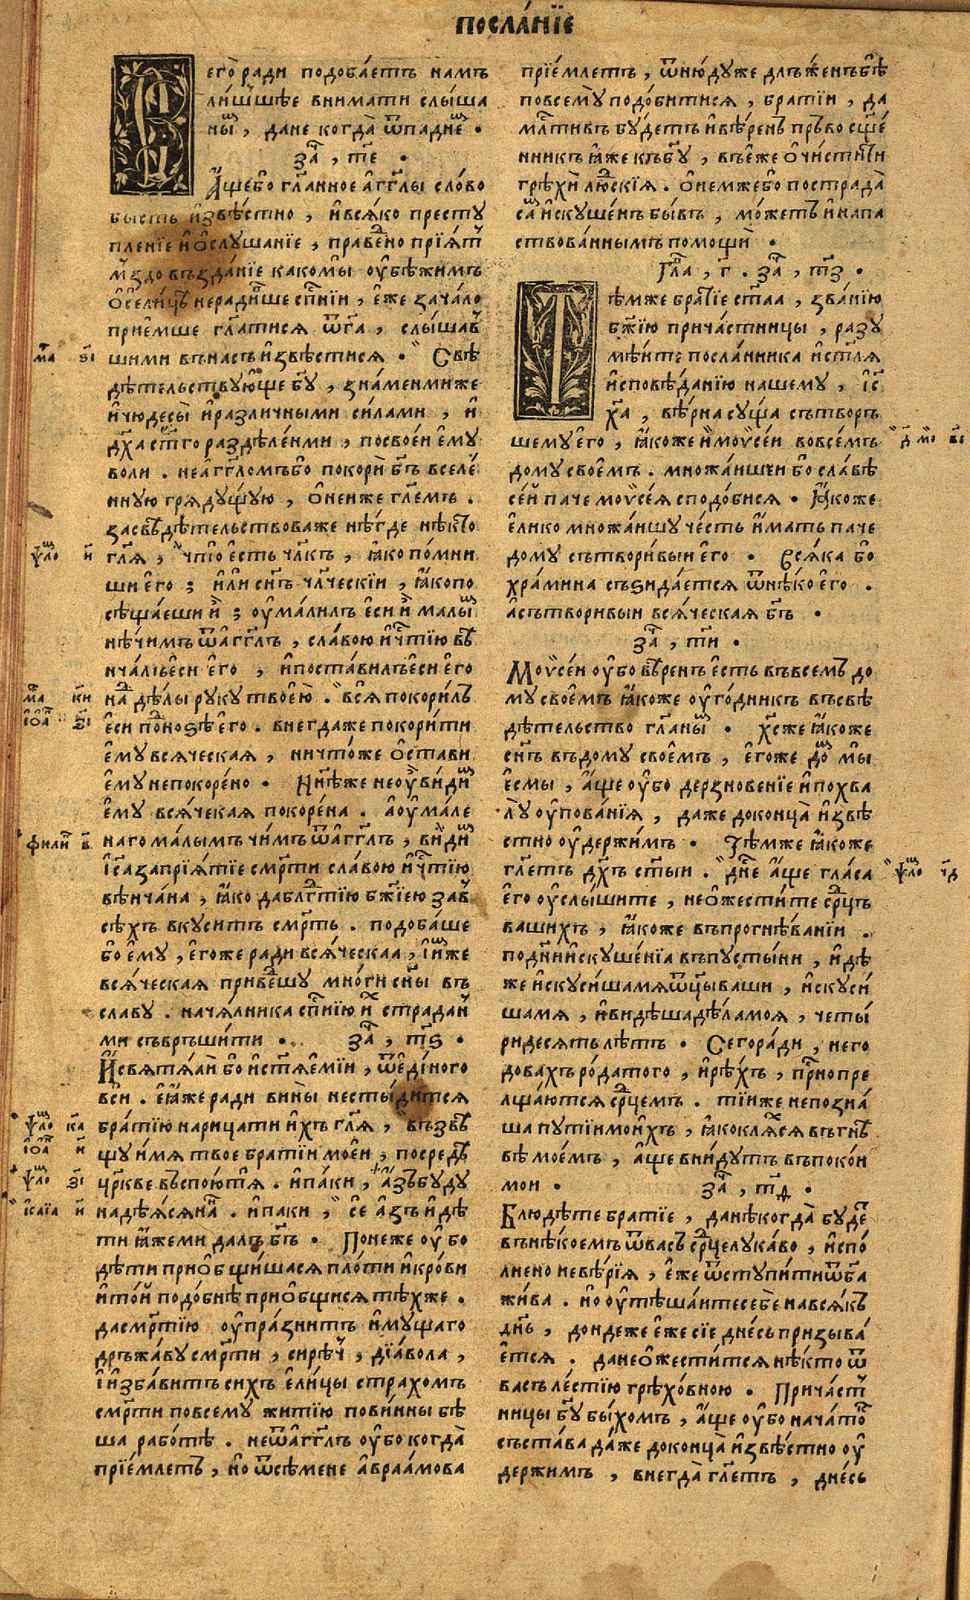 посла́нїе
Сего̀ ради подоба́етъ намъ
ли́шьшѣе внимати слы́ша
ны̑ⷨ , дане когда̀ ѿпадне̑ⷨ .
за҃ , т҃е .
А҆́ще бо гл҃анное а҆гг҃лы сло́во
бысть и҆звѣ́стно , и҆вся́ко престу
пленїе и҆ѻ҆слушанїе , праведⷣно прїя́тⷭ
м҃здовъзда́нїе како мы̀ оу҆бѣжимъ
ѻ҆сели́цѣⷨ неради́вше сп҃нїи , е҆́же зача́ло
прїе́мше гл҃атися ѿг҃а , слы́шавⷲ
шими внⷩасъ и҆звѣстися . Свѣ
дѣ́тельствую́ще бг҃у , зна́менми же
и҆чюдесы̀ и҆различными си́лами , и҆
дх҃а ст҃го раздѣле́нми , посвое́и е҆му̀
воли . неа҆гг҃ломъ бо покорѝ бг҃ъ вселе́
нную гряду́щую , ѻ҆неиже гл҃емъ .
засвѣдѣ́тельствоваже нѣ́где нѣ́кто
гл҃я , что̀ е҆сть чл҃къ , ꙗ҆́ко по́мни
ши е҆го ; и҆лѝ сн҃ъ чл҃ческїи , ꙗ҆́копо
сѣща́еши и҆̀ ; оу҆ма́лилъ е҆сѝ и҆̀ малы́ⷨ
нѣ́чимъ ѿа҆гг҃лъ , сла́вою и҆чⷭ҇тїю вѣ
нча́лъ е҆сѝ е҆го , и҆поста́вилъ е҆си е҆го
надⷣѣлы руку твое́ю . вся̀ покори́лъ
е҆си поⷣ но́зѣ е҆го . внегда же покори́ти
е҆му̀ вся́ческая , ничто́же ѻ҆стави
е҆му̀ непокоре́но . Нн҃ѣ же неоу҆̀ ви́диⷨ
е҆му̀ вся́ческая покоре́на . а҆оу҆ма́ле
наго ма́лымъ чи́мъ ѿа҆гг҃лъ , ви́диⷨ
і҆с҃а запрїя́тїе сме́рти сла́вою и҆чⷭ҇тїю
вѣнча́на , ꙗ҆́ко дабл҃гтїю бж҃їею завⷭ
сѣ́хъ вкуситъ смр҃ть . подоба́ше
бо е҆му̀ , е҆го́же ради вся́ческаа , и҆и҆́мже
вся́ческая приве́дшу мно́ги сн҃ы въ
славу . нача́лника сп҃нїю и҆хⷯ страдан̾
ми съвръши́ти . за҃ , т҃ѕ .
И҆свята́и бо и҆ст҃яе́мїи , ѿеди́ного
вси . е҆ꙗ҆́же ради вины̀ нестыди́тся
бра́тїю нарица́ти и҆́хъ гл҃я , възвѣ
щу и҆́мя твое братїи мое́и , посредѣ̀
цр҃кве въспою́тя . и҆паки , а҆́зъ бу́ду
надѣ́яся на́нь . и҆паки , сѐ а҆́зъ и҆дѣ́
ти ꙗ҆́же ми далъ бг҃ъ . Поне́же оу҆́бо
дѣти приѻбщи́шася пло́ти и҆кро́ви
и҆то́й подо́бнѣ приѻбщися тѣ́хже .
да сме́ртїю оу҆праздни́тъ и҆му́щаго
дръжа́ву сме́рти , сирѣ́чь , дїа́вола ,
і҆и҆зба́витъ сихъ е҆ли́цы стра́хомъ
сме́рти повсему̀ житїю пови́нны бѣ
ша рабо́тѣ . неѿа҆гг҃лъ оу҆́бо когда̀
прїе́млетъ , но ѿсѣ́мене а҆враа́мова
прїе́млетъ , ѿню́дуже длъ́женъ бѣ̀
повсему̀ подо́битися , бра́тїи , да
мл҃тивъ бу́детъ и҆вѣ́ренъ пръво сщ҃е
нникъ ꙗ҆́же къ бг҃у , въе́же ѻ҆чи́стити
грѣхѝ лю́дскїя . ѻ҆не́мже бо пострада̀
са́мⷨ и҆скуше́нъ бы́въ , мо́жетъ и҆напа
ствова́ннымъ помощѝ .
Гла҃ , г҃ . за҃ , т҃з .
Тѣ́мже бра́тїе ст҃аа , зва́нїю
бж҃їю прича́стницы , разу
мѣ́ите посла́нника и҆ст҃ля
и҆сповѣ́данїю нашему , і҆с҃
х҃а , вѣ́рна су́ща сътворь
шему е҆го , ꙗ҆́коже и҆моѵсе́и вовсе́мъ
дому̀ свое́мъ . множа́ишеи бо сла́вѣ
се́й паче моѵсе́я сподо́бися . ꙗ҆́коже
е҆лико множа́ишу че́сть и҆́мать паче
дому̀ сътвори́выи е҆го . Вся́ка бо
хра́мина съзида́ется ѿнѣ́ко е҆го .
а҆сътвори́выи вся́ческая бг҃ъ .
за҃ , т҃и .
Моѵсе́и оу҆́бо вѣ́ренъ е҆́сть въвсемъ до
му̀ свое́мъ ꙗ҆́коже оу҆го́дникъ въсвѣ
дѣ́тельство гл҃аны̑ⷨ . хс҃же ꙗ҆́коже
сн҃ъ вдому̀ свое́мъ , е҆го́же до́мъ мы̀
е҆смы , а҆́ще оу҆́бо дерзнове́нїе и҆похва
лу̀ оу҆пова́нїя , даже доконца̀ и҆звѣ
стно оу҆держи́мъ . Тѣ́мже ꙗ҆́коже
гл҃етъ дх҃ъ ст҃ыи . дн҃е а҆́ще гла́са
е҆го̀ оу҆слы́шите , неѻ҆жести́те ср҃дцъ
ва́шихъ , ꙗ҆́коже въпрогнѣ́ванїи .
под҃ни и҆скуше́нїа въпусты́ни , и҆дѣ
же и҆скуси́ша мя ѿцы̀ ваши , и҆скуси́
ша мя , и҆ви́дѣша дѣ́ла моя̀ , четы́
ридесять лѣ́тъ . Сего́ ра́ди , него
дова́хъ ро́да того , и҆рѣ́хъ , пр҃но пре
лща́ются ср҃дцемъ . тїи́же непозна́
ша путїи мои́хъ , ꙗ҆́ко кля́хся въгнѣ
вѣ мое́мъ , а҆́ще вни́дутъ въпоко́и
мои . за҃ , т҃д .
Блюдѣ́те бра́тїе , дане́когда̀ бу́детⷮ
въ нѣ́коемъ ѿвасъ ср҃дце лука́во , и҆спо́
лнено невѣ́рїя , е҆́же ѿступи́ти ѿбг҃а
жи́ва . но оу҆тѣша́ите себѐ нався́къ
днь , до́ндеже е҆́же сїе дне́сь призыва́
е҆тся . дане ѻ҆жести́тся нѣ́кто ѿ
васъ ле́стїю грѣхо́вною . Прича́стⷭ
ницы бг҃у бы́хомъ , а҆́ще оу҆́бо нача́то
съста́ва да́же доконца̀ и҆звѣ́стно оу҆
держимъ , внегда̀ гл҃етъ , дне́сь